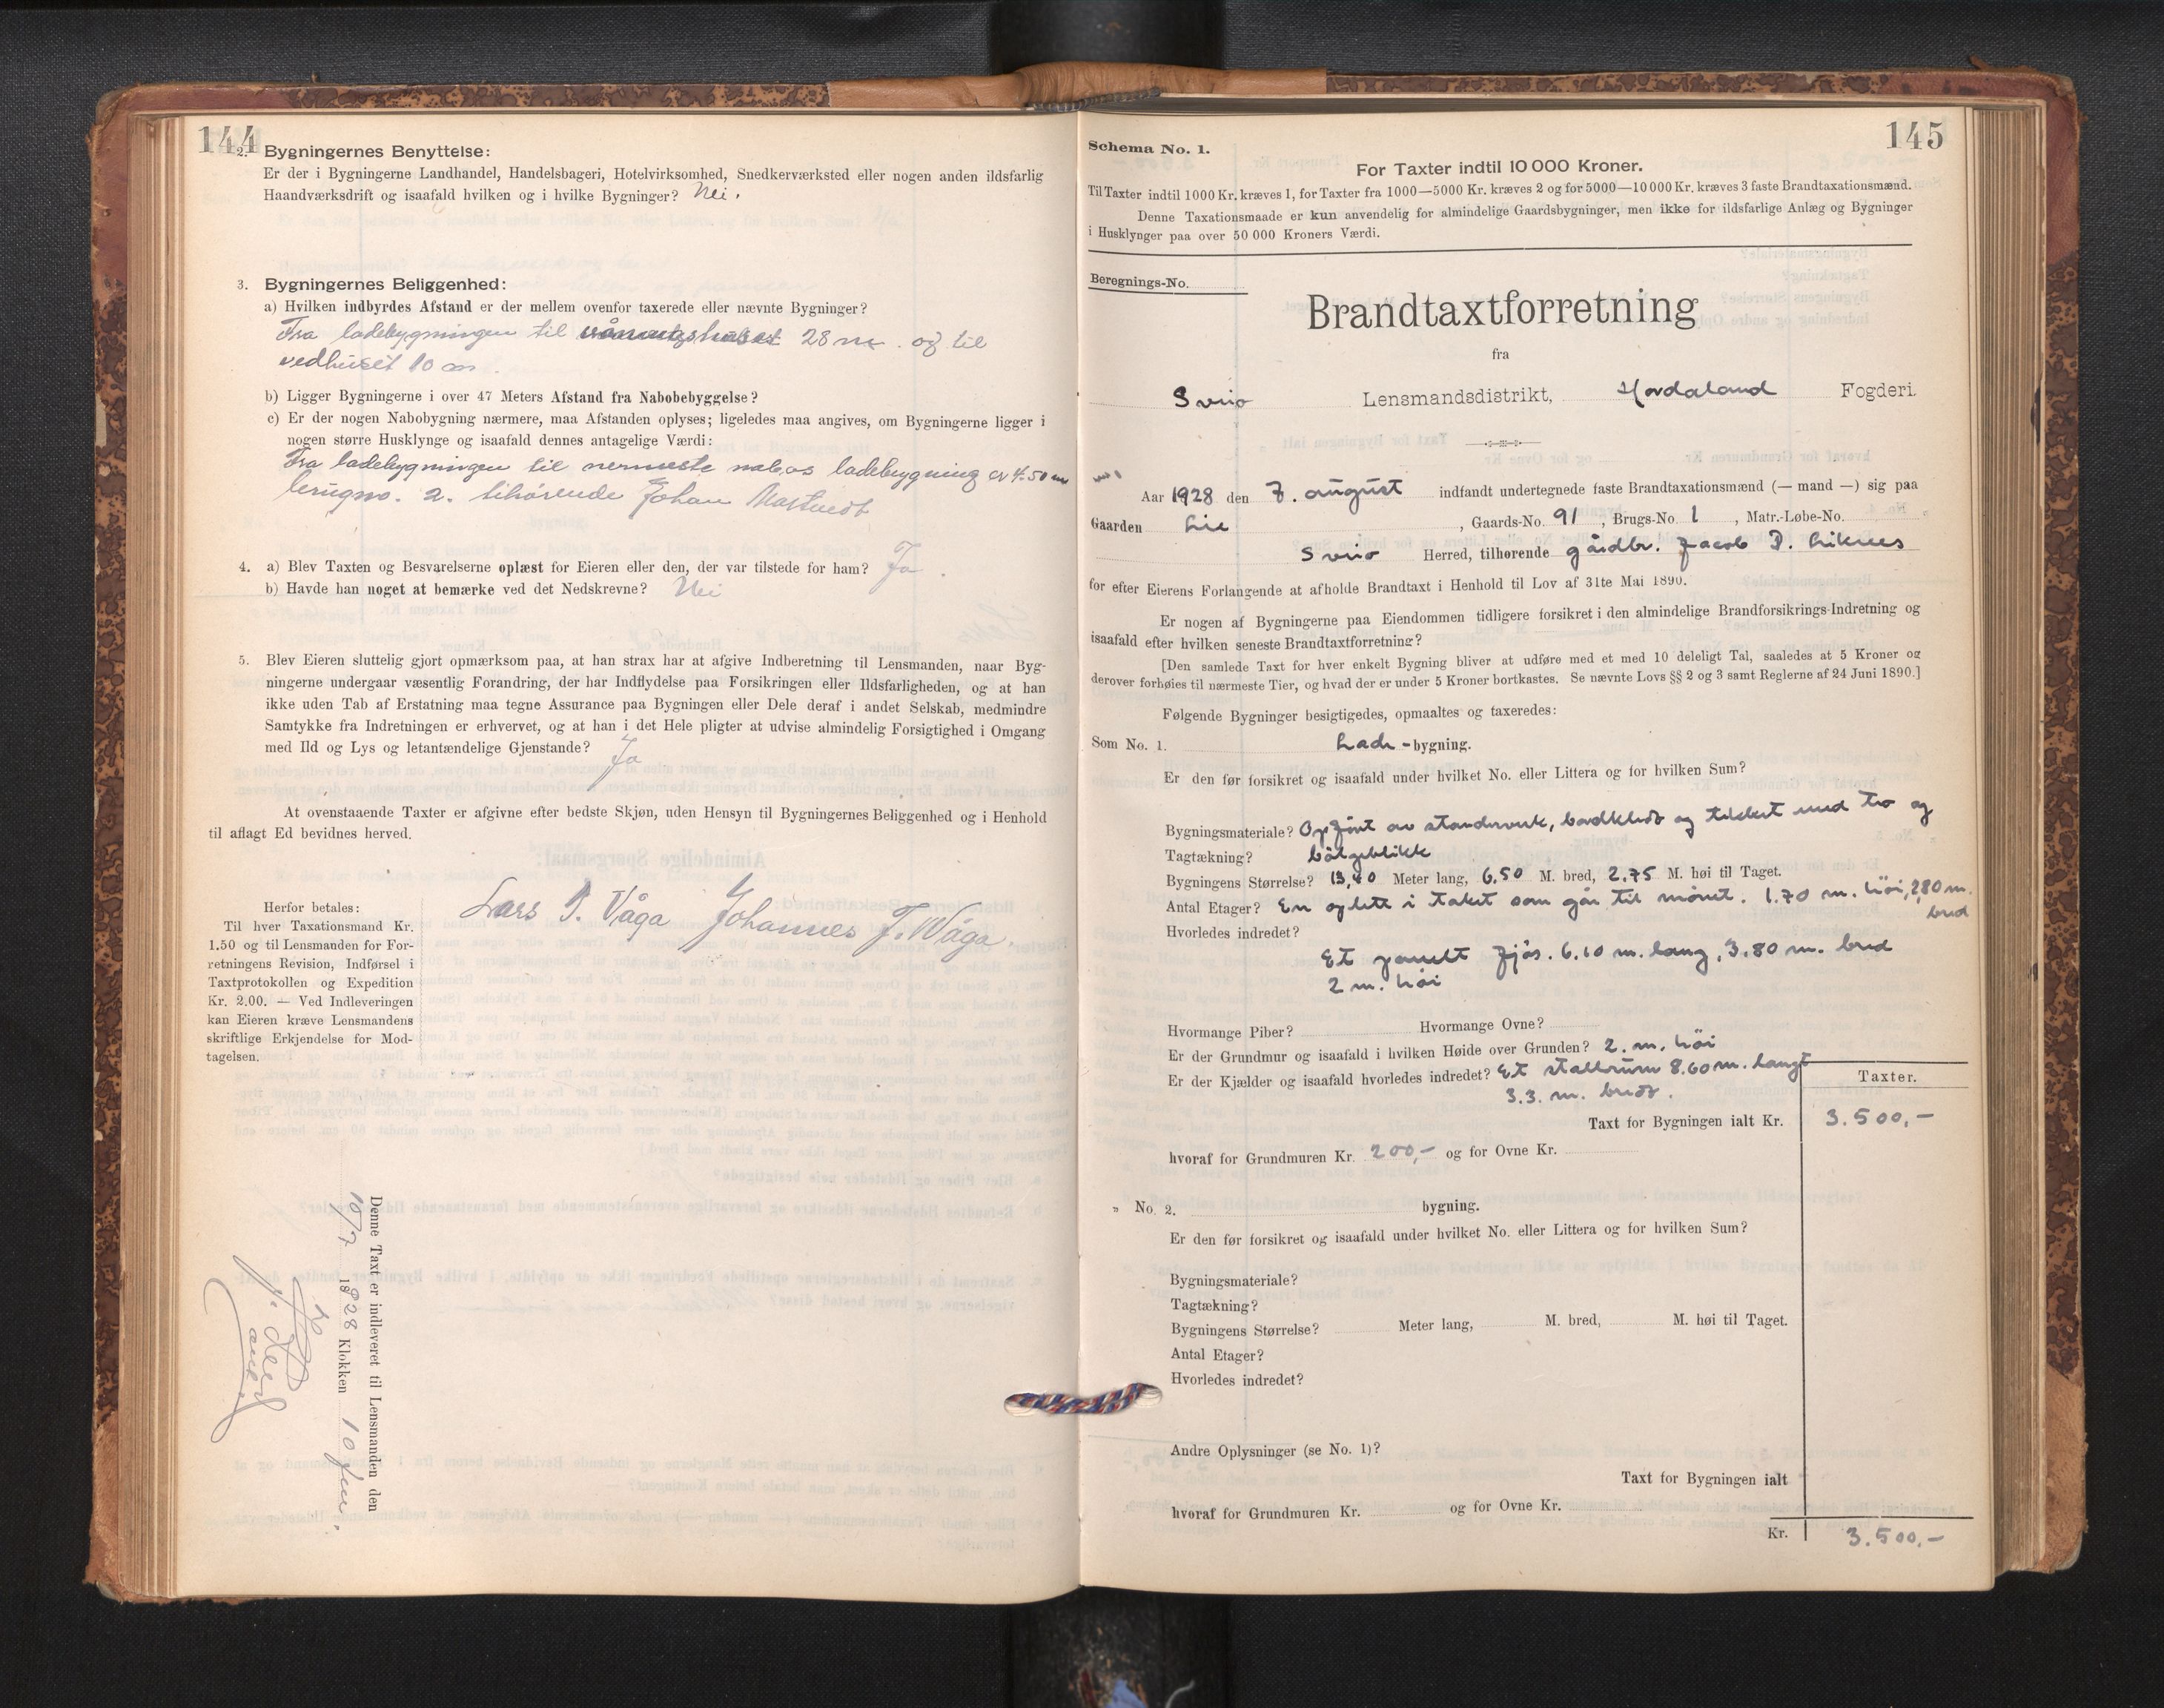 144
2. Bygningernes Benyttelse:
Er der i Bygningerne Landhandel, Handelsbageri, Hotelvirksomhed, Snedkerværksted eller nogen anden ildsfarlig
Haandværksdrift og isaafald hvilken og i hvilke Bygninger? Nei.
3. Bygningernes Beliggenhed:
a) Hvilken indbyrdes Afstand er der mellem ovenfor taxerede eller nævnte Bygninger?
Fra ladebygningen til våningshuset 28 m. og til
vedhuset 10 m.
b) Ligger Bygningerne i over 47 Meters Afstand fra Nabobebyggelse?
c) Er der nogen Nabobygning nærmere, maa Afstanden oplyses; ligeledes maa angives, om Bygningerne ligger i
nogen større Husklynge og isaafald dennes antagelige Værdi:
Fra ladebygningen til nermeste nabos ladebygning er 4.50 m
brugno. 2. tilhørende Johan
4. a) Blev Taxten og Besvarelserne oplæst for Eieren eller den, der var tilstede for ham? Ja.
b) Havde han noget at bemærke ved det Nedskrevne? Nei
5. Blev Eieren sluttelig gjort opmærksom paa, at han strax har at afgive Indberetning til Lensmanden, naar Byg-
ningerne undergaar væsentlig Forandring, der har Indflydelse paa Forsikringen eller Ildsfarligheden, og at han
ikke uden Tab af Erstatning maa tegne Assurance paa Bygningen eller Dele deraf i andet Selskab, medmindre
Samtykke fra Indretningen er erhvervet, og at han i det Hele pligter at udvise almindelig Forsigtighed i Omgang
med Ild og Lys og letantændelige Gjenstande? Ja
At ovenstaaende Taxter er afgivne efter bedste Skjøn, uden Hensyn til Bygningernes Beliggenhed og i Henhold
til aflagt Ed bevidnes herved.
Lars P. Våga Johannes J. Våga.
Herfor betales:
Til hver Taxationsmand Kr.
1.50 og til Lensmanden for For-
retningens Revision, Indførsel i
Taxtprotokollen og Expedition
Kr. 2.00. — Ved Indleveringen
kan Eieren kræve Lensmandens
skriftlige Erkjendelse for Mod-
tagelsen.
Denne Taxt er indleveret til Lensmanden den
10/7 1928 Klokken 10 fm.
145
Schema No. 1.
For Taxter indtil 10 000 Kroner.
Til Taxter indtil 1000 Kr. kræves 1, for Taxter fra 1000—5000 Kr. kræves 2 og for 5000—10000 Kr. kræves 3 faste Brandtaxationsmænd.
Denne Taxationsmaade er kun anvendelig for almindelige Gaardsbygninger, men ikke for ildsfarlige Anlæg og Bygninger
i Husklynger paa over 50 000 Kroners Værdi.
Beregnings-No.
Brandtaxtforretning
fra
Sveio Lensmandsdistrikt, Hordaland Fogderi.
Aar 1928 den 7. august indfandt undertegnede faste Brandtaxationsmænd (— mand —) sig paa
Gaarden Lie, Gaards-No. 91, Brugs-No. 1, Matr.-Løbe-No.
Sveio Herred, tilhørende gårdbr. Jacob P. Liknes
for efter Eierens Forlangende at afholde Brandtaxt i Henhold til Lov af 31te Mai 1890.
Er nogen af Bygningerne paa Eiendommen tidligere forsikret i den almindelige Brandforsikrings-Indretning og
isaafald efter hvilken seneste Brandtaxtforretning?
[Den samlede Taxt for hver enkelt Bygning bliver at udføre med et med 10 deleligt Tal, saaledes at 5 Kroner og
derover forhøies til nærmeste Tier, og hvad der er under 5 Kroner bortkastes. Se nævnte Lovs §§ 2 og 3 samt Reglerne af 24 Juni 1890.]
Følgende Bygninger besigtigedes, opmaaltes og taxeredes:
Som No. 1. Lade-bygning.
Er den før forsikret og isaafald under hvilket No. eller Littera og for hvilken Sum?
Bygningsmateriale? Opført av standerverk, bordkledt og tekket med tro og
Tagtækning? bölgeblikk
Bygningens Størrelse? 13,40 Meter lang, 6.50 M. bred, 2.75 M. høi til Taget.
Antal Etager? En oplett i taket som går til mönet. 1.70 m. höi, 2,80 m.
bred
Hvorledes indredet?
Et panelt fjös. 6.10 m. lang, 3.80 m. bred
2 m. höi
Hvormange Piber? Hvormange Ovne?
Er der Grundmur og isaafald i hvilken Høide over Grunden? 2. m. höi
Er der Kjælder og isaafald hvorledes indredet? Et stallrum 8.60 m. langt
3.3. m. bredt.
Taxter.
Taxt for Bygningen ialt Kr. 3.500,-
hvoraf for Grundmuren Kr. 200,- og for Ovne Kr.
" No. 2. bygning.
Er den før forsikret og isaafald under hvilket No. eller Littera og for hvilken Sum?
Bygningsmateriale?
Tagtækning?
Bygningens Størrelse? Meter lang, M. bred, M. høi til Taget.
Antal Etager?
Hvorledes indredet?
Andre Oplysninger (se No. 1)?
Taxt for Bygningen ialt
hvoraf for Grundmuren Kr. og for Ovne Kr.
Kr. 3.500,-